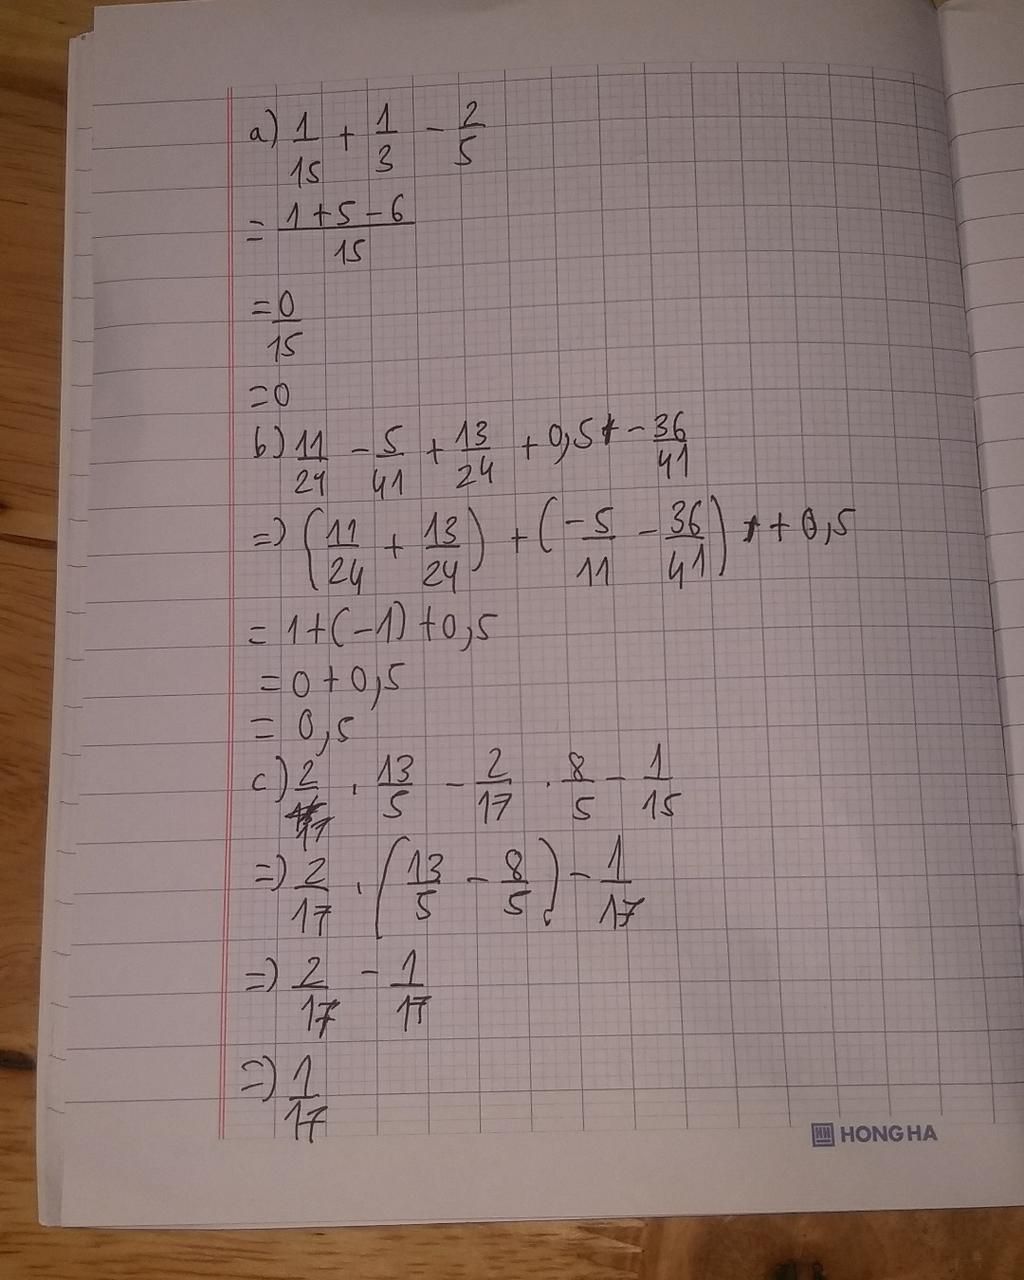 a) 1/15 + 1/3 - 2/5
= (1+5-6)/15
= 0/15
= 0
b) 11/24 - 5/41 + 13/24 + 0,5 - 36/41
=) (11/24 + 13/24) + (-5/11 - 36/41) + 0,5
= 1+(-1)+0,5
= 0+0,5
= 0,5
c) 2/17 . 13/5 - 2/17 . 8/5 - 1/15
=) 2/17 . (13/5 - 8/5) - 1/17
=) 2/17 - 1/17
=) 1/17
HONG HA